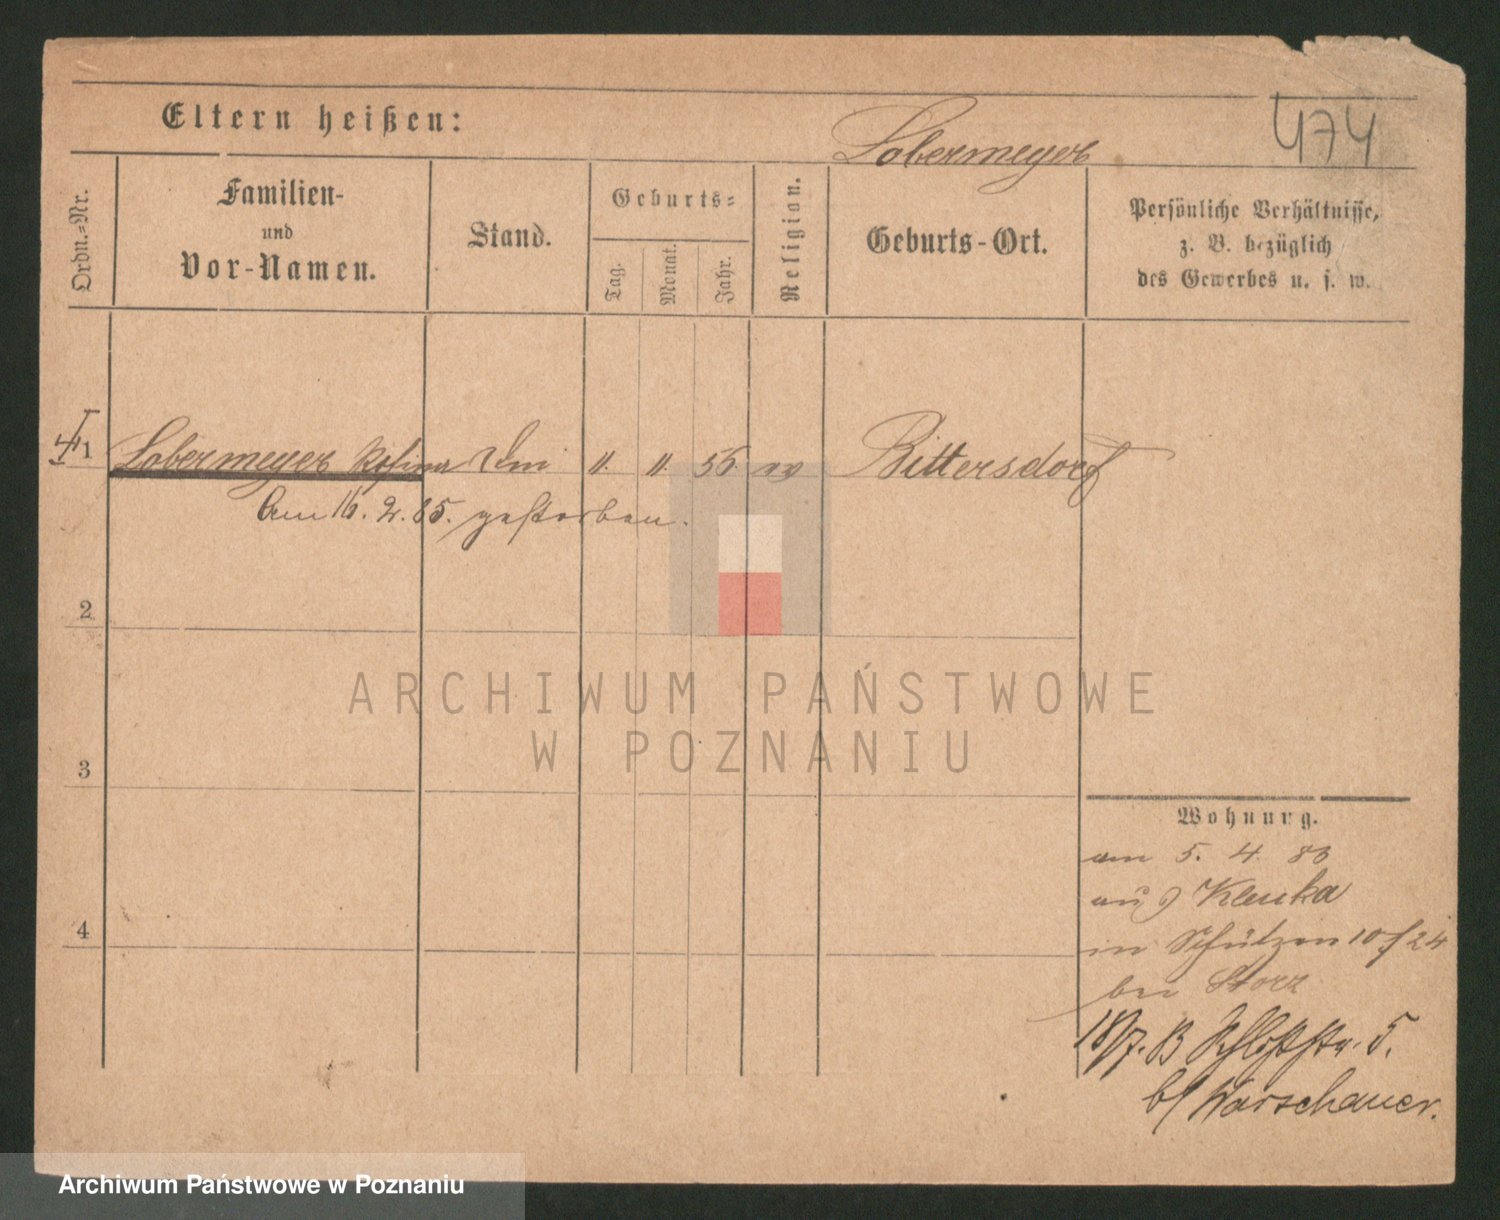 Eltern heißen:
Lobermeyer
474
Ordn.-Nr.
Familien-
und
Vor-Namen.
Stand.
Geburts-
Tag.
Monat.
Jahr.
Religion.
Geburts-Ort.
Persönliche Verhältnisse,
z. B. bezüglich
des Gewerbes u. s. w.
1 Lobermeyer Rosina 11. 11. 56 Bittersdorf
Am 16. 2. 85. gestorben.
2
3
4
ARCHIWUM PAŃSTWOWE
W POZNANIU
Wohnung.
am 5. 4. 83
aus Klenka
in Schützen 10 f 24
bei Storz
18/7. Schloßstr. 5.
b/ Warschauer.
Archiwum Państwowe w Poznaniu